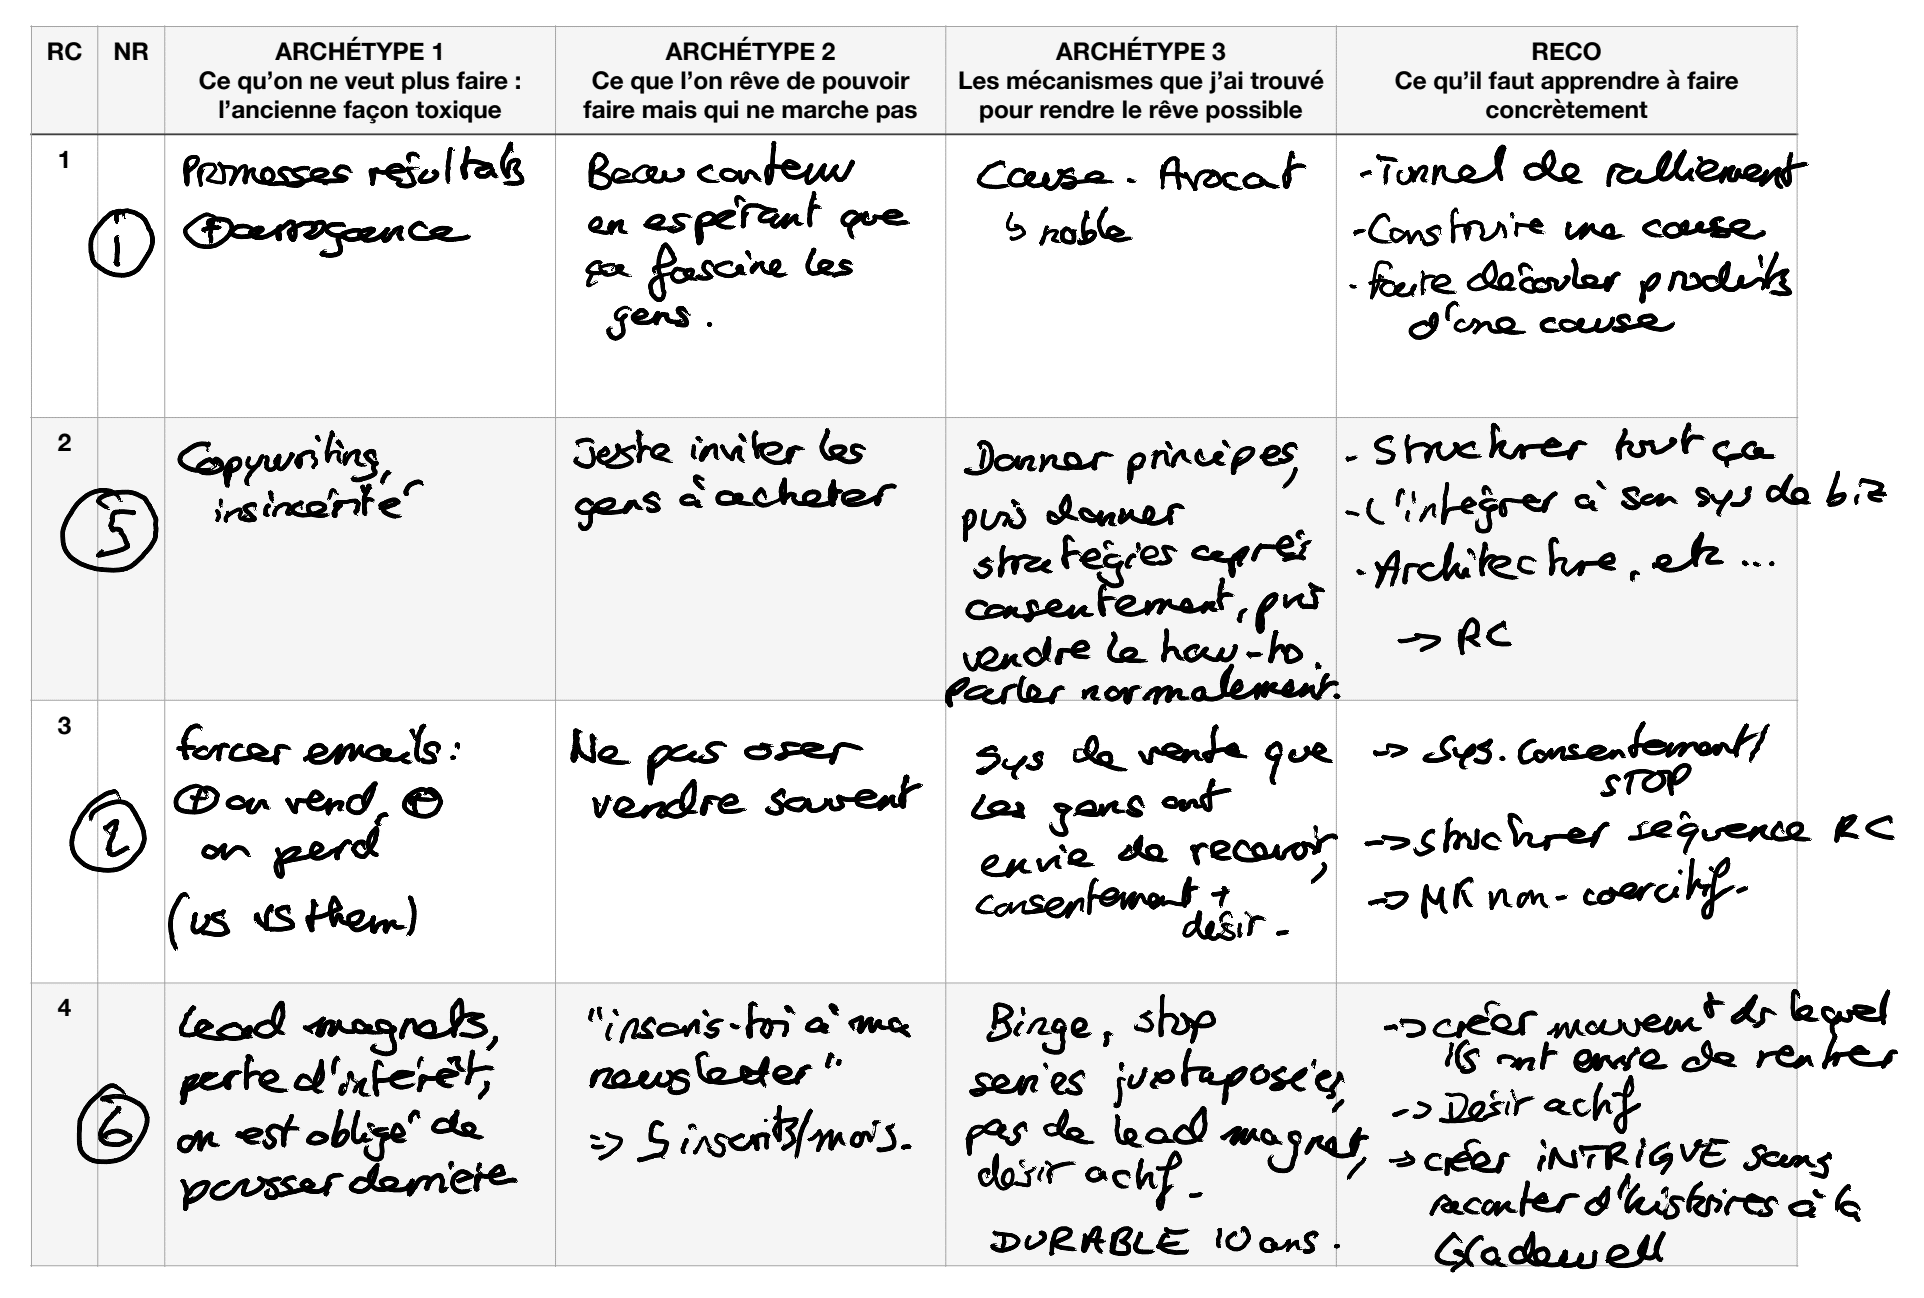 RC
NR
ARCHÉTYPE 1
Ce qu'on ne veut plus faire :
l'ancienne façon toxique
ARCHÉTYPE 2
Ce que l'on rêve de pouvoir
faire mais qui ne marche pas
ARCHÉTYPE 3
Les mécanismes que j'ai trouvé
pour rendre le rêve possible
RECO
Ce qu'il faut apprendre à faire
concrètement
1
1
Promesses résultats
+ arrogance
Beau contenu
en espérant que
ça fascine les
gens.
Cause. Avocat
↳ noble
- Tunnel de ralliement
- Construire une cause
- Faire découler produits
d'une cause
2
5
Copywriting,
insincérité
Juste inviter les
gens à acheter
Donner principes,
puis donner
stratégies après
consentement, puis
vendre le how-to.
Parler normalement.
- Structurer tout ça
- L'intégrer à son sys de biz
- Architecture, etc...
→ RC
3
2
forcer emails :
+ on vend, -
on perd
(us vs them)
Ne pas oser
vendre souvent
Sys de vente que
les gens ont
envie de recevoir,
consentement +
désir -
→ Sys. Consentement/
STOP
→ structurer séquence RC
→ MK non-coercitif-
4
6
Lead magnets,
perte d'intérêt,
on est obligé de
pousser derrière
"inscris-toi à ma
newsletter"
=> 5 inscrits/mois.
Binge, stop
séries juxtaposées,
pas de lead magnet,
désir actif -
DURABLE 10 ans.
→ créer mouvemt ds lequel
ils ont envie de rentrer
→ Désir actif
→ créer INTRIGUE sans
raconter d'histoires à la
Gladewell